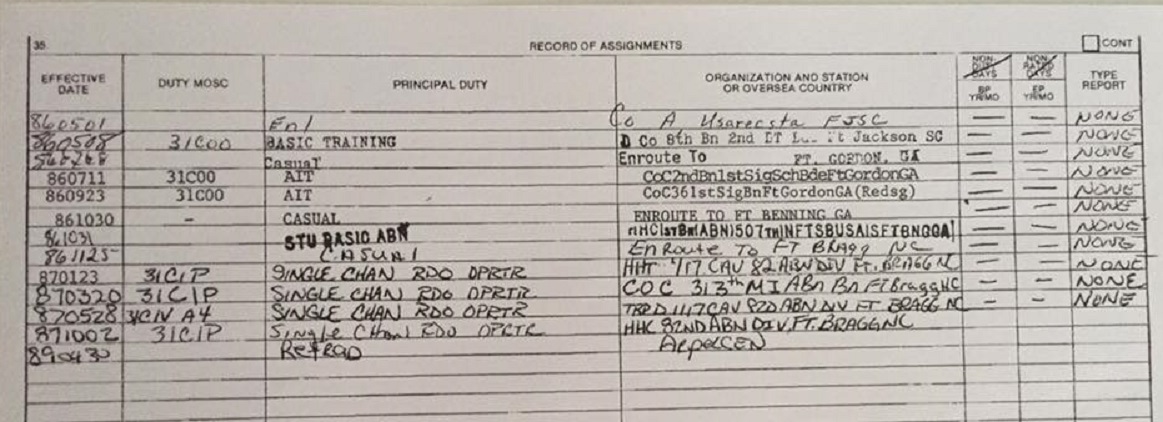 35 RECORD OF ASSIGNMENTS CONT
EFFECTIVE DATE DUTY MOSC PRINCIPAL DUTY ORGANIZATION AND STATION OR OVERSEA COUNTRY NON-DUTY DAYS BP YR/MO NON-RATED DAYS EP YR/MO TYPE REPORT
860501 Enl Co A Usarecsta FJSC — — NONE
860508 31C00 BASIC TRAINING D Co 8th Bn 2nd Jackson SC — — NONE
Casual Enroute To FT. GORDON, GA — — NONE
860711 31C00 AIT CoC2ndBn1stSigSchBdeFtGordonGA — — NONE
860923 31C00 AIT CoC361stSigBnFtGordonGA(Redsg) — — NONE
861030 - CASUAL ENROUTE TO FT BENNING GA — — NONE
861031 STU BASIC ABN — — NONE
861125 CASUAL EnRoute To FT BRAGG NC — — NONE
870123 31C1P SINGLE CHAN RDO OPRTR HHT 1/17 CAV 82 ABN DIV FT. BRAGG NC — — NONE
870320 31C1P SINGLE CHAN RDO OPRTR COC 313th MI ABn Bn FT Bragg NC — — NONE
870528 A4 SINGLE CHAN RDO OPRTR TRP D 1/17 CAV 82D ABN DIV FT BRAGG NC — — NONE
871002 31C1P Single Chan RDO OPRTR HHC 82ND ABN DIV. FT. BRAGG NC
890430 Refrad